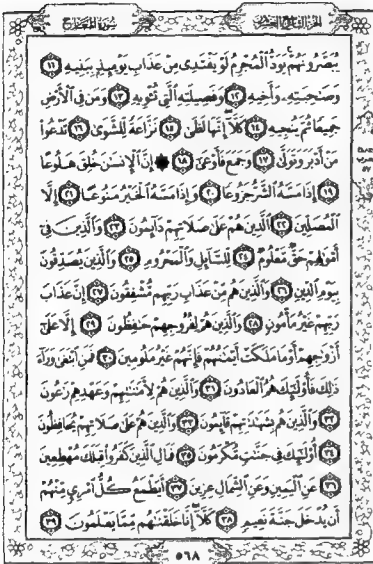 سورة المعارج الجزء التاسع والعشرون
يُبَصَّرُونَهُمْ يَوَدُّ ٱلْمُجْرِمُ لَوْ يَفْتَدِى مِنْ عَذَابِ يَوْمِئِذٍ بِبَنِيهِ ١١
وَصَٰحِبَتِهِۦ وَأَخِيهِ ١٢ وَفَصِيلَتِهِ ٱلَّتِى تُـْٔوِيهِ ١٣ وَمَن فِى ٱلْأَرْضِ
جَمِيعًا ثُمَّ يُنجِيهِ ١٤ كَلَّآ إِنَّهَا لَظَىٰ ١٥ نَزَّاعَةً لِّلشَّوَىٰ ١٦ تَدْعُوا۟
مَنْ أَدْبَرَ وَتَوَلَّىٰ ١٧ وَجَمَعَ فَأَوْعَىٰٓ ١٨ إِنَّ ٱلْإِنسَٰنَ خُلِقَ هَلُوعًا
١٩ إِذَا مَسَّهُ ٱلشَّرُّ جَزُوعًا ٢٠ وَإِذَا مَسَّهُ ٱلْخَيْرُ مَنُوعًا ٢١ إِلَّا
ٱلْمُصَلِّينَ ٢٢ ٱلَّذِينَ هُمْ عَلَىٰ صَلَاتِهِمْ دَآئِمُونَ ٢٣ وَٱلَّذِينَ فِىٓ
أَمْوَٰلِهِمْ حَقٌّ مَّعْلُومٌ ٢٤ لِّلسَّآئِلِ وَٱلْمَحْرُومِ ٢٥ وَٱلَّذِينَ يُصَدِّقُونَ
بِيَوْمِ ٱلدِّينِ ٢٦ وَٱلَّذِينَ هُم مِّنْ عَذَابِ رَبِّهِم مُّشْفِقُونَ ٢٧ إِنَّ عَذَابَ
رَبِّهِمْ غَيْرُ مَأْمُونٍ ٢٨ وَٱلَّذِينَ هُمْ لِفُرُوجِهِمْ حَٰفِظُونَ ٢٩ إِلَّا عَلَىٰٓ
أَزْوَٰجِهِمْ أَوْ مَا مَلَكَتْ أَيْمَٰنُهُمْ فَإِنَّهُمْ غَيْرُ مَلُومِينَ ٣٠ فَمَنِ ٱبْتَغَىٰ وَرَآءَ
ذَٰلِكَ فَأُو۟لَٰٓئِكَ هُمُ ٱلْعَادُونَ ٣١ وَٱلَّذِينَ هُمْ لِأَمَٰنَٰتِهِمْ وَعَهْدِهِمْ رَٰعُونَ
٣٢ وَٱلَّذِينَ هُم بِشَهَٰدَٰتِهِمْ قَآئِمُونَ ٣٣ وَٱلَّذِينَ هُمْ عَلَىٰ صَلَاتِهِمْ يُحَافِظُونَ
٣٤ أُو۟لَٰٓئِكَ فِى جَنَّٰتٍ مُّكْرَمُونَ ٣٥ فَمَالِ ٱلَّذِينَ كَفَرُوا۟ قِبَلَكَ مُهْطِعِينَ
٣٦ عَنِ ٱلْيَمِينِ وَعَنِ ٱلشِّمَالِ عِزِينَ ٣٧ أَيَطْمَعُ كُلُّ ٱمْرِئٍ مِّنْهُمْ
أَن يُدْخَلَ جَنَّةَ نَعِيمٍ ٣٨ كَلَّآ إِنَّا خَلَقْنَٰهُم مِّمَّا يَعْلَمُونَ ٣٩
٥٦٨